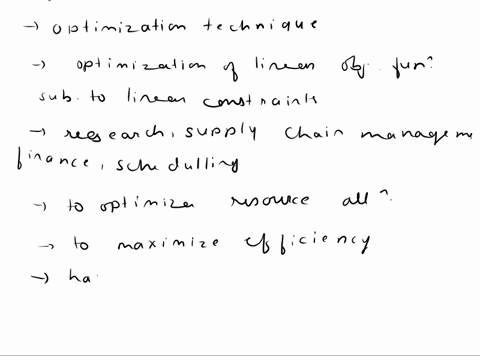 → optimization technique
→ optimization of linear obj. funⁿ
sub. to linear constraints
→ research, supply chain manageme
finance, schedulling
→ to optimize resource allⁿ
→ to maximize efficiency
→ ha